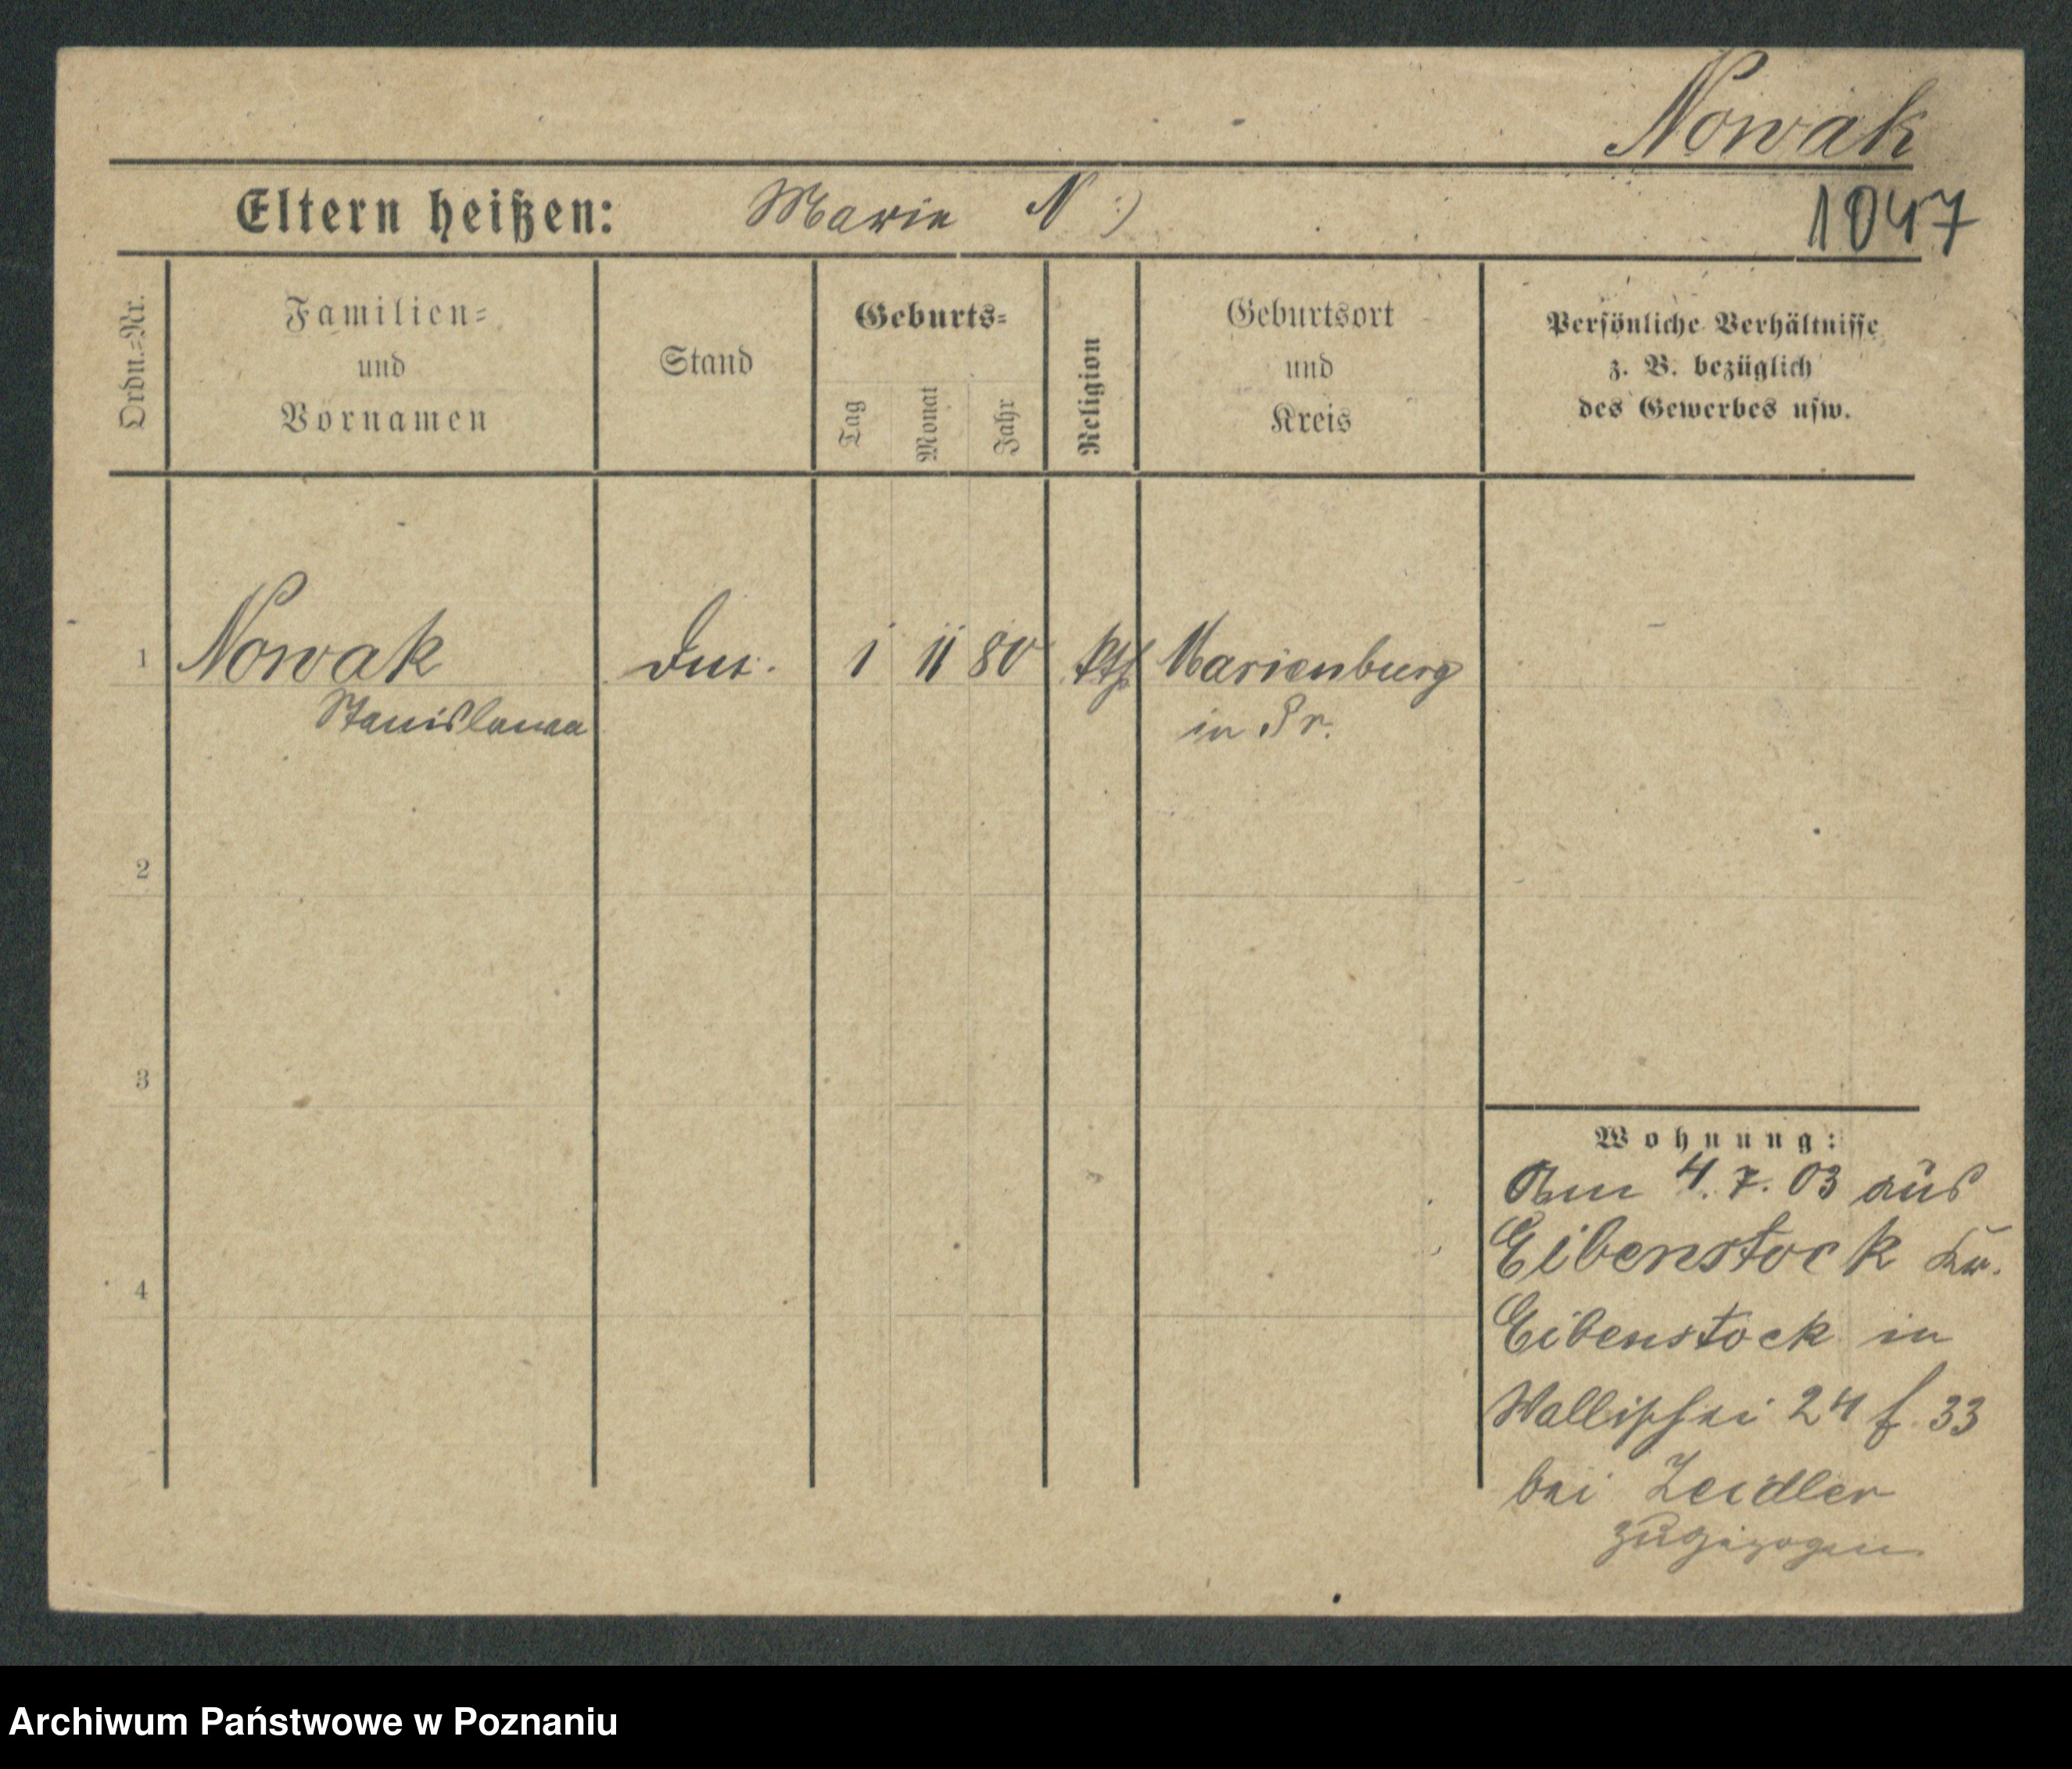 Nowak
1047
Eltern heißen: Marie N :)
Ordn.=Nr.
Familien=
und
Vornamen
Stand
Geburts=
Tag
Monat
Jahr
Religion
Geburtsort
und
Kreis
Persönliche Verhältnisse
z. B. bezüglich
des Gewerbes usw.
1 Nowak 1 11 80 kth Marienburg
Stanislawa in Pr.
2
3
4
Wohnung:
Am 4. 7. 03 aus
Eibenstock Kr.
Eibenstock in
Wallischei 24 f. 33
bei Zeidler
zugezogen
Archiwum Państwowe w Poznaniu